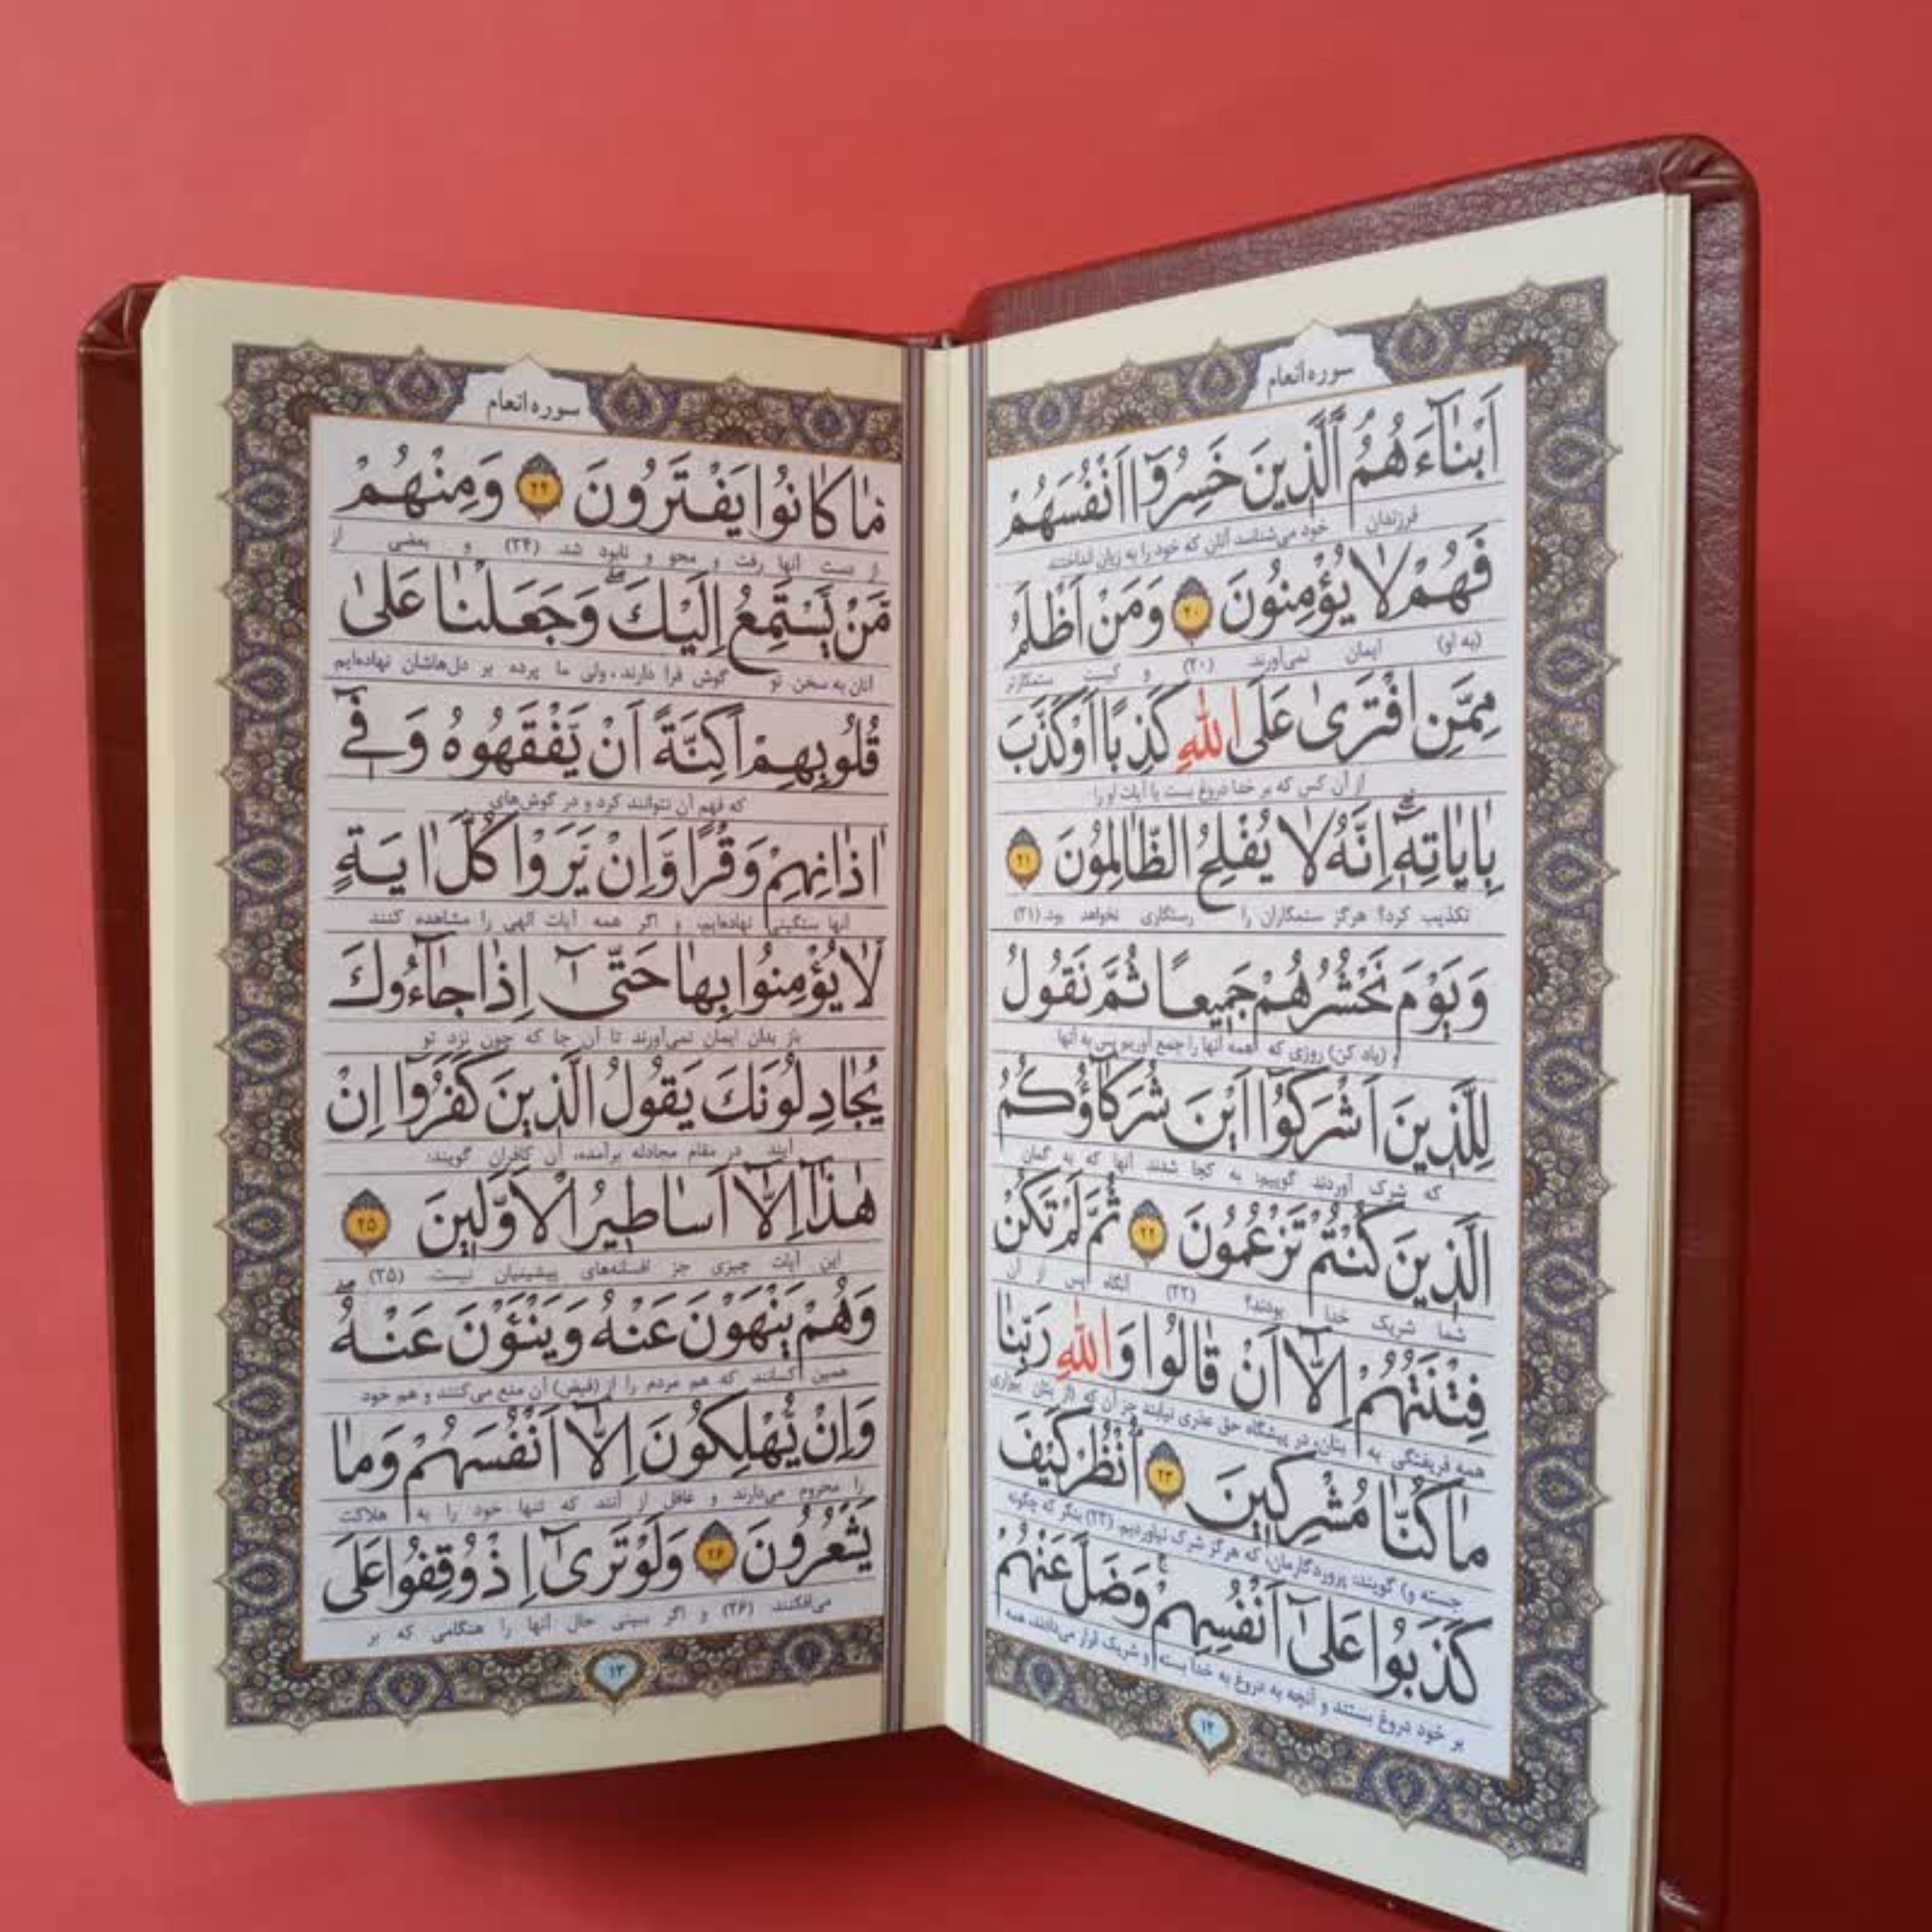 سوره انعام
اَبْنٰاۤءَهُمُ الَّذِینَ خَسِرُوۤا اَنْفُسَهُمْ
فرزندان خود می‌شناسد آنان که خود را به زیان انداختند
فَهُمْ لٰا یُؤْمِنُونَ ۲۰ وَمَنْ اَظْلَمُ
(به او) ایمان نمی‌آورند. (۲۰) و کیست ستمکارتر
مِمَّنِ افْتَرىٰ عَلَى اللهِ كَذِبًا اَوْ كَذَّبَ
از آن کس که بر خدا دروغ بست یا آیات او را
بِاٰیٰاتِهٖۤ اِنَّهُ لٰا یُفْلِحُ الظّٰالِمُونَ ۲۱
تکذیب کرد؟ هرگز ستمکاران را رستگاری نخواهد بود. (۲۱)
وَیَوْمَ نَحْشُرُهُمْ جَمِیعًا ثُمَّ نَقُولُ
(یاد کن) روزی که همه آنها را جمع آوریم پس به آنها
لِلَّذِینَ اَشْرَكُوۤا اَیْنَ شُرَكٰاۤؤُكُمُ
که شرک آوردند گوییم: به کجا شدند آنها که به گمان
الَّذِینَ كُنْتُمْ تَزْعُمُونَ ۲۲ ثُمَّ لَمْ تَكُنْ
شما شریک خدا بودند؟ (۲۲) آنگاه پس از آن
فِتْنَتُهُمْ اِلّٰاۤ اَنْ قٰالُوا وَاللهِ رَبِّنٰا
همه فریفتگی به بتان، در پیشگاه حق عذری نیابند جز آن که (از بتان بیزاری
مٰا كُنّٰا مُشْرِكِینَ ۲۳ اُنْظُرْ كَیْفَ
جسته و) گویند: پروردگارمان، که هرگز شرک نیاوردیم. (۲۳) بنگر که چگونه
كَذَبُوا عَلىٰۤ اَنْفُسِهِمْ ۚ وَضَلَّ عَنْهُمْ
بر خود دروغ بستند و آنچه به دروغ به خدا بسته و شریک قرار می‌دادند، همه
۱۲
سوره انعام
مٰا كٰانُوا یَفْتَرُونَ ۲۴ وَمِنْهُمْ
از دست آنها رفت و محو و نابود شد. (۲۴) و بعضی از
مَنْ یَسْتَمِعُ اِلَیْكَ ۖ وَجَعَلْنٰا عَلىٰ
آنان به سخن تو گوش فرا دارند، ولی ما پرده بر دل‌هاشان نهاده‌ایم
قُلُوبِهِمْ اَكِنَّةً اَنْ یَفْقَهُوهُ وَفِیۤ
که فهم آن نتوانند کرد و در گوش‌های
اٰذٰانِهِمْ وَقْرًا وَاِنْ یَرَوْا كُلَّ اٰیَةٍ
آنها سنگینی نهاده‌ایم، و اگر همه آیات الهی را مشاهده کنند
لٰا یُؤْمِنُوا بِهٰا حَتّٰىۤ اِذٰا جٰاۤءُوكَ
باز بدان ایمان نمی‌آورند تا آن جا که چون نزد تو
یُجٰادِلُونَكَ یَقُولُ الَّذِینَ كَفَرُوۤا اِنْ
آیند در مقام مجادله برآمده، آن کافران گویند:
هٰذٰاۤ اِلّٰاۤ اَسٰاطِیرُ الْاَوَّلِینَ ۲۵
این آیات چیزی جز افسانه‌های پیشینیان نیست. (۲۵)
وَهُمْ یَنْهَوْنَ عَنْهُ وَیَنْئَوْنَ عَنْهُ ۖ
همین کسانند که هم مردم را از (فیض) آن منع می‌کنند و هم خود
وَاِنْ یُهْلِكُونَ اِلّٰاۤ اَنْفُسَهُمْ وَمٰا
را محروم می‌دارند و غافل از آنند که تنها خود را به هلاکت
یَشْعُرُونَ ۲۶ وَلَوْ تَرىٰۤ اِذْ وُقِفُوا عَلَى
می‌افکنند. (۲۶) و اگر ببینی حال آنها را هنگامی که بر
۱۳